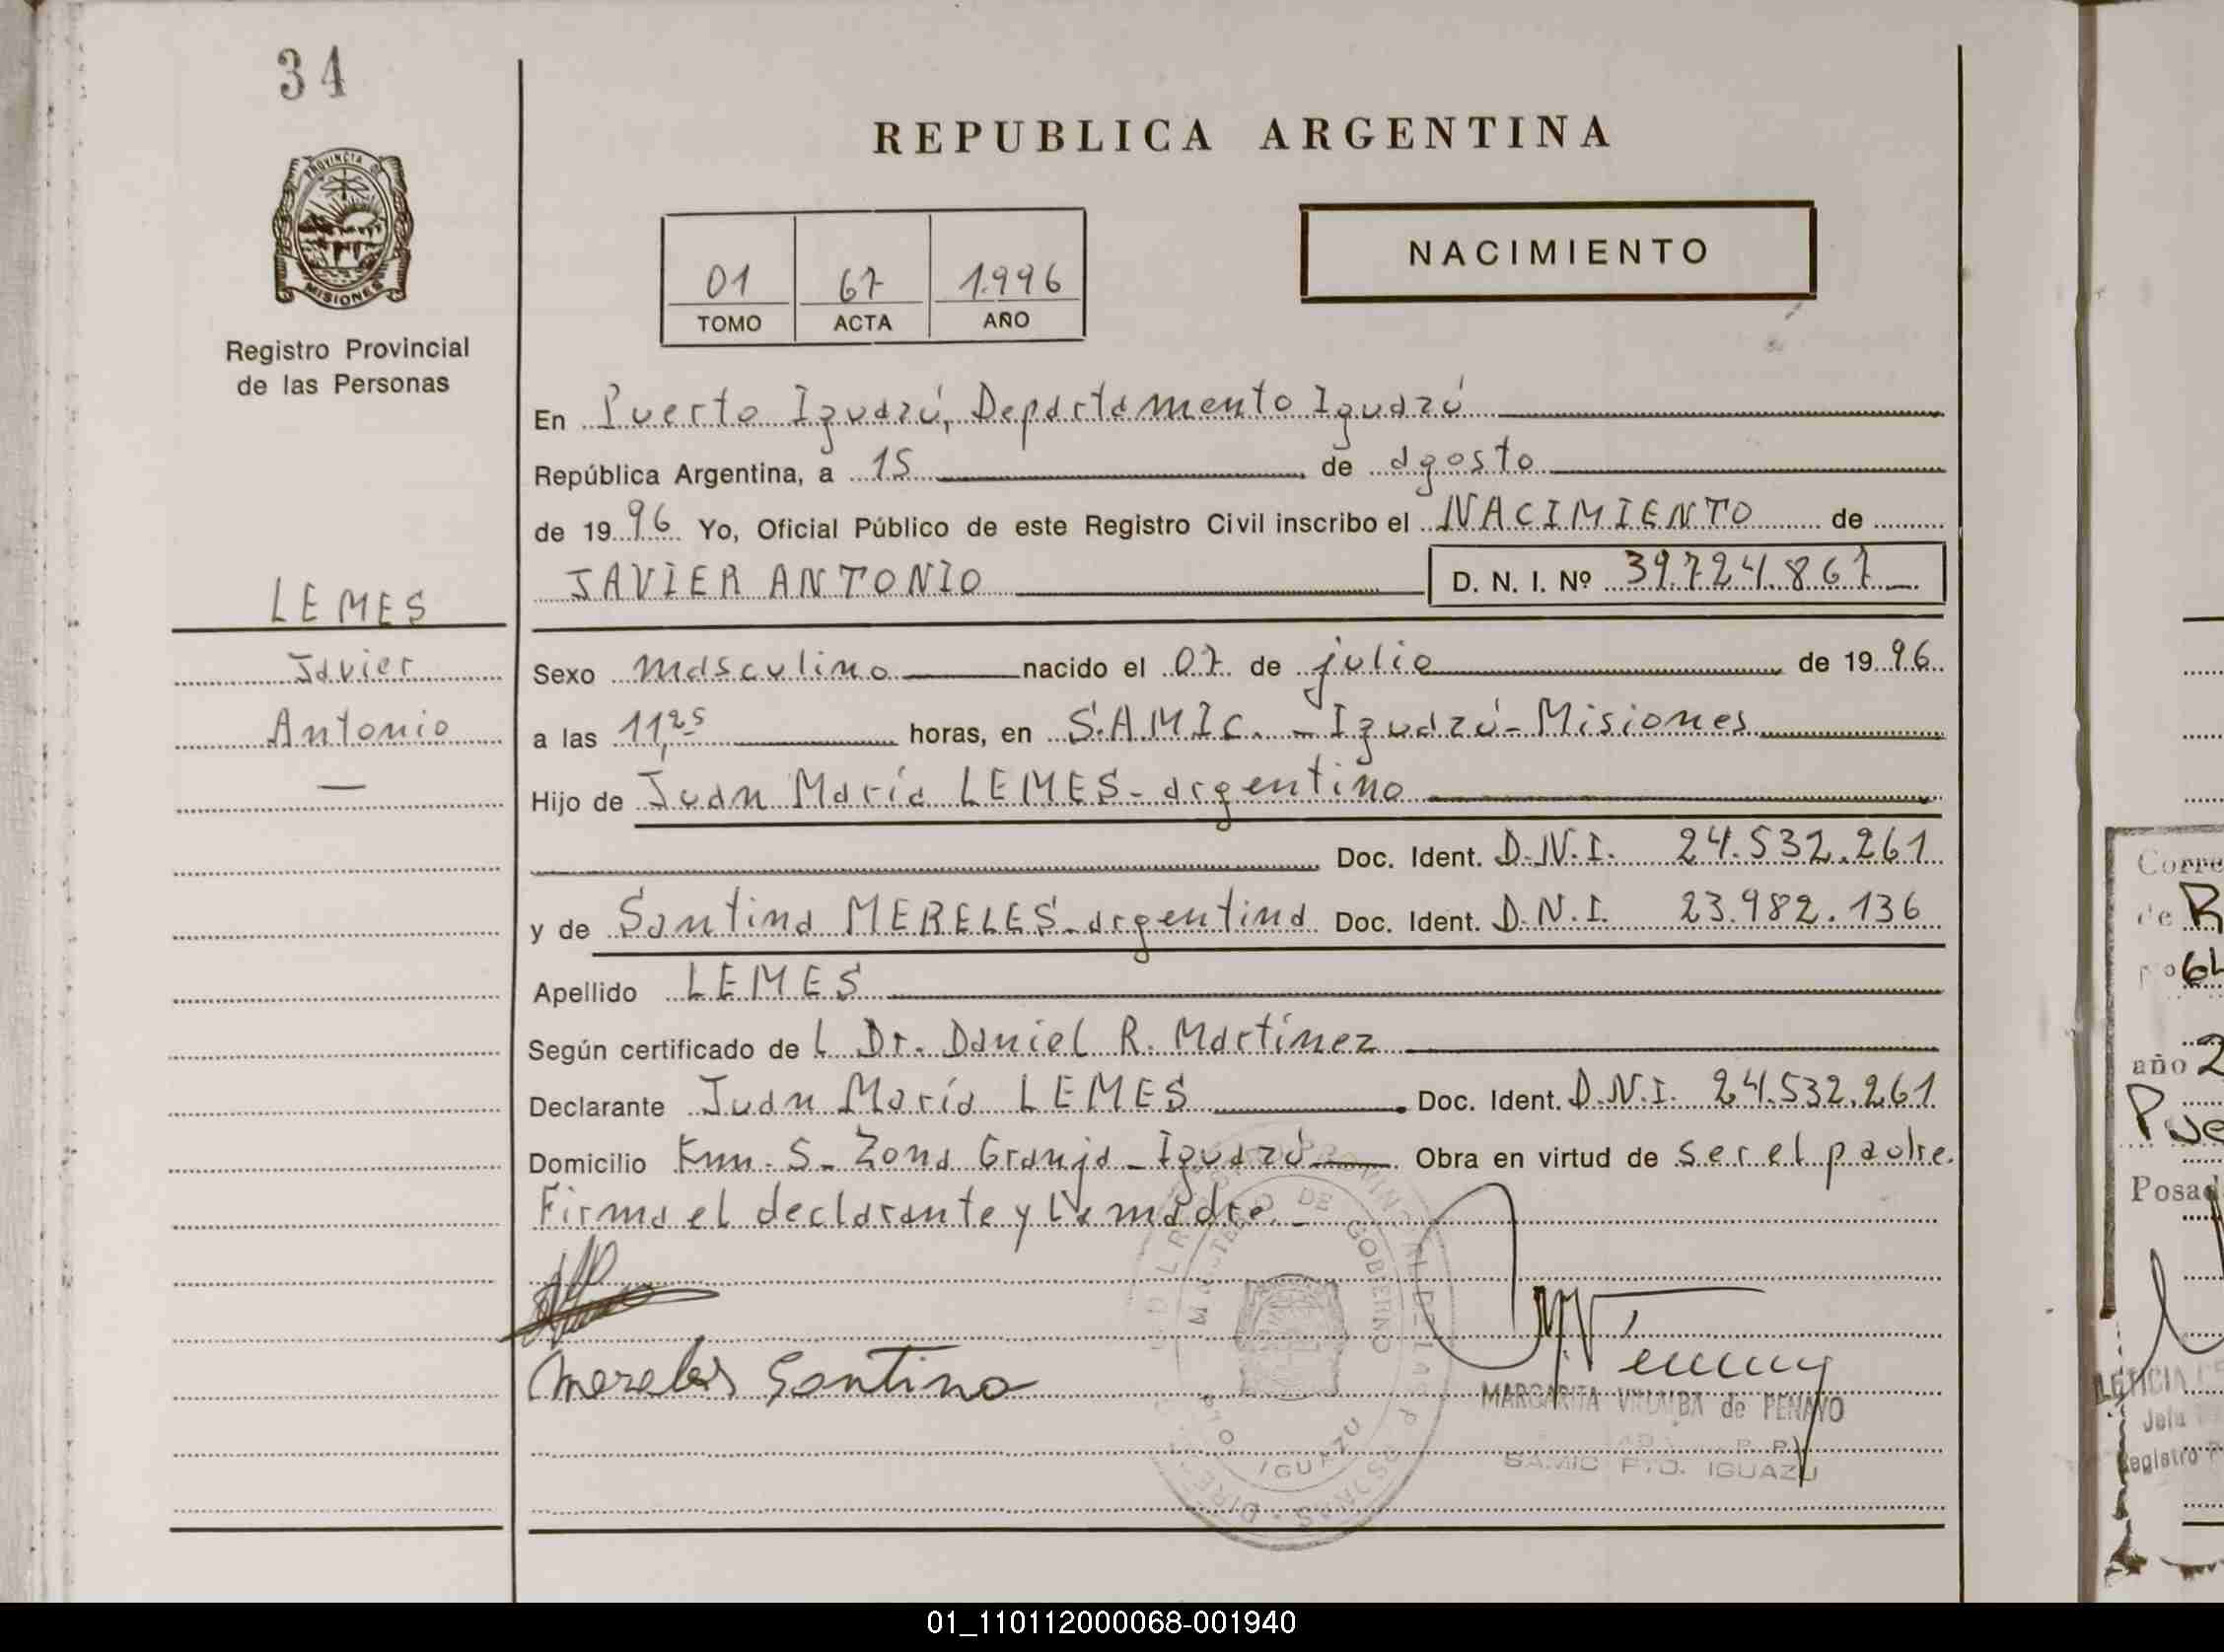 34
REPUBLICA ARGENTINA
PROVINCIA D
MISIONES
Registro Provincial
de las Personas
01 67 1.996
TOMO ACTA AÑO
NACIMIENTO
En Puerto Iguazú, Departamento Iguazú
República Argentina, a 15 de agosto
de 1996 Yo, Oficial Público de este Registro Civil inscribo el NACIMIENTO de
JAVIER ANTONIO D. N. I. Nº 39.724.867
LEMES
Javier
Antonio
—
Sexo masculino nacido el 07 de julio de 1996
a las 11,25 horas, en S.A.M.I.C. - Iguazú - Misiones
Hijo de Juan María LEMES - argentino
Doc. Ident. D.N.I. 24.532.261
y de Santina MERELES - argentina Doc. Ident. D.N.I. 23.982.136
Apellido LEMES
Según certificado de l Dr. Daniel R. Martínez
Declarante Juan María LEMES Doc. Ident. D.N.I. 24.532.261
Domicilio Km. 5 - Zona Granja - Iguazú Obra en virtud de ser el padre.
Firma el declarante y la madre. -
Mereles Santina
MINISTERIO DE GOBIERNO
PTO IGUAZU
MARGARITA VILLALBA de PENAYO
SAMIC PTO. IGUAZU
Corre
de R
año 2
Pue
Posad
LETICIA
Jefa
Registro P
01_110112000068-001940